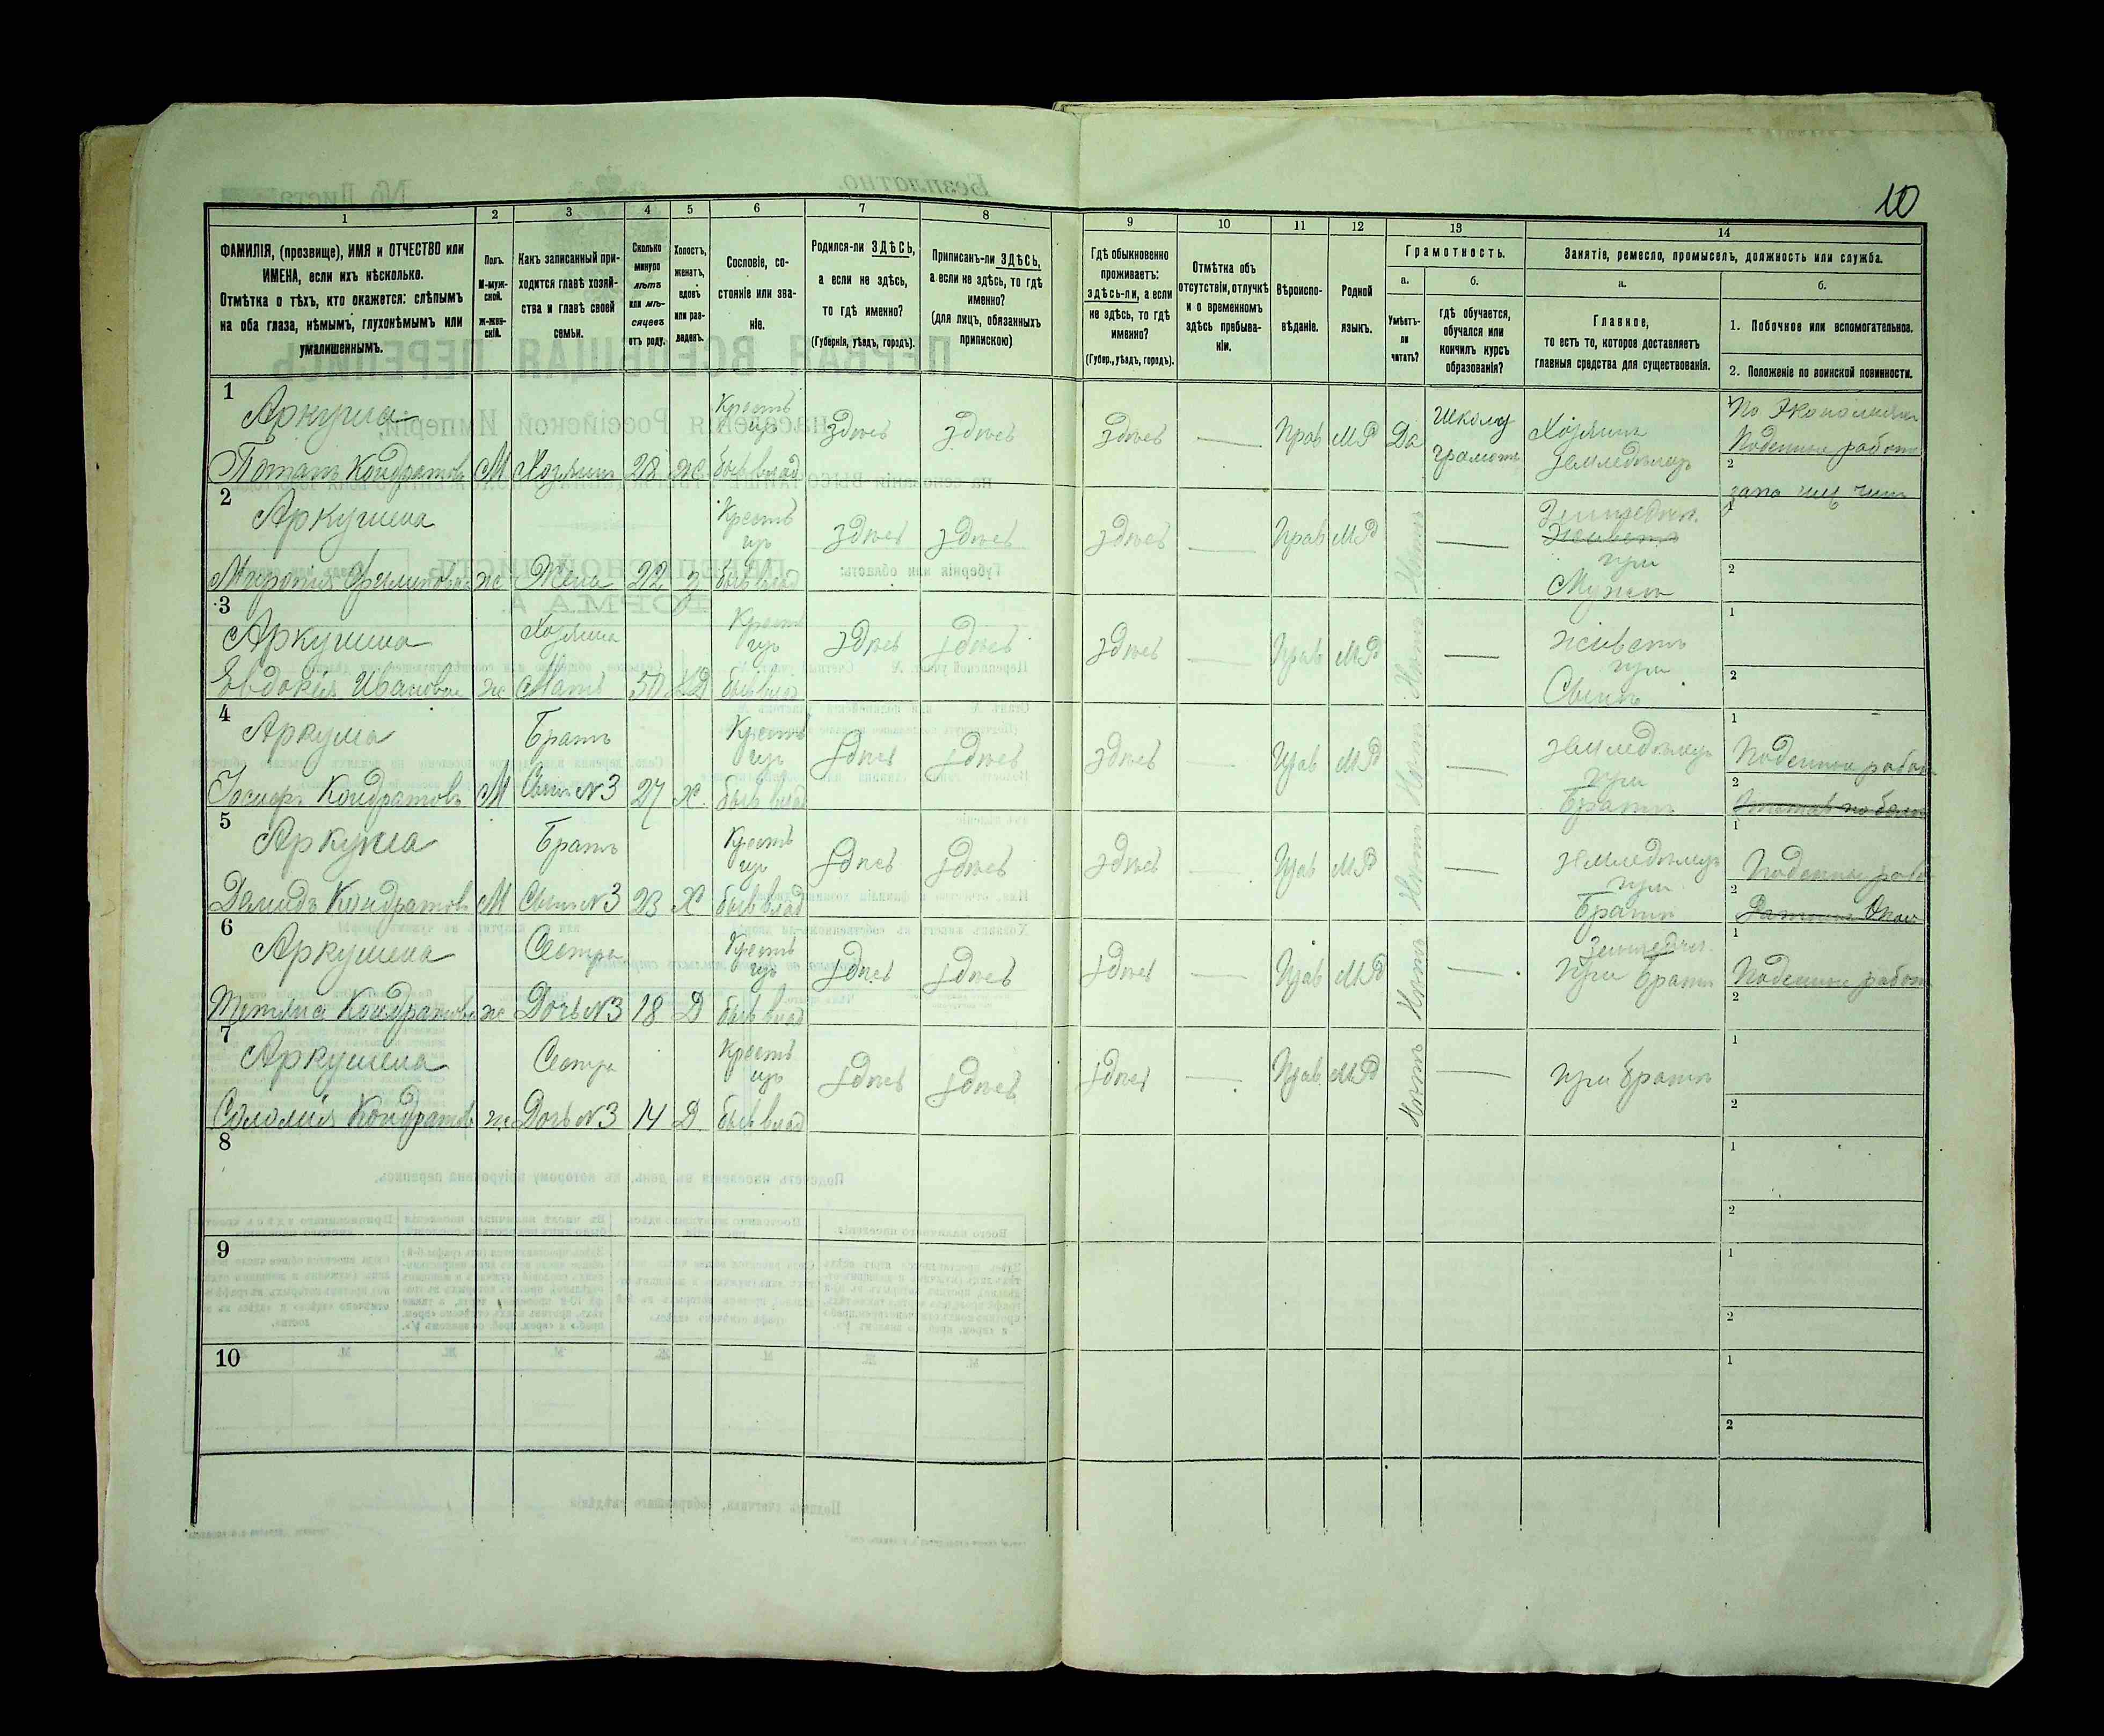 10
1
2
3
4
5
6
7
8
9
10
11
12
13
14
ФАМИЛІЯ, (прозвище), ИМЯ и ОТЧЕСТВО или
ИМЕНА, если ихъ нѣсколько.
Отмѣтка о тѣхъ, кто окажется: слѣпымъ
на оба глаза, нѣмымъ, глухонѣмымъ или
умалишеннымъ.
Полъ.
М-муж-
ской.
Ж-жен-
скій.
Какъ записанный при-
ходится главѣ хозяй-
ства и главѣ своей
семьи.
Сколько
минуло
лѣтъ
или мѣ-
сяцевъ
отъ роду.
Холостъ,
женатъ,
вдовъ
или раз-
веденъ.
Сословіе, со-
стояніе или зва-
ніе.
Родился-ли ЗДѢСЬ,
а если не здѣсь,
то гдѣ именно?
(Губернія, уѣздъ, городъ).
Приписанъ-ли ЗДѢСЬ,
а если не здѣсь, то гдѣ
именно?
(для лицъ, обязанныхъ
припискою)
Гдѣ обыкновенно
проживаетъ:
здѣсь-ли, а если
не здѣсь, то гдѣ
именно?
(Губер., уѣздъ, городъ).
Отмѣтка объ
отсутствіи, отлучкѣ
и о временномъ
здѣсь пребыва-
ніи.
Вѣроиспо-
вѣданіе.
Родной
языкъ.
Грамотность.
а.
Умѣетъ-
ли
читать?
б.
гдѣ обучается,
обучался или
кончилъ курсъ
образованія?
Занятіе, ремесло, промыселъ, должность или служба.
а.
Главное,
то есть то, которое доставляетъ
главныя средства для существованія.
б.
1. Побочное или вспомогательное.
2. Положеніе по воинской повинности.
1
Аркуша
Потапъ Кондратовъ М Хозяинъ 28 ж.
Крестъ
изъ
бывъ влад
здѣсь здѣсь здѣсь — Прав МР Да
Школу
грамоты
Хозяинъ
земледѣлецъ
1
По Экономіямъ
Поденные работы
2
2
Аркушева
ж Жена 22 з
Крестъ
изъ
бывъ влад
здѣсь здѣсь здѣсь — Прав МР Нѣтъ —
при
Мужѣ
1
2
3
Аркушева
Евдокія Иванова ж
Хозяина
Мать 50
Крестъ
изъ
бывъ влад
здѣсь здѣсь здѣсь — Прав МР Нѣтъ —
живетъ
при
Сынѣ
1
2
4
Аркуша
Іосифъ Кондратовъ М
Братъ
Сынъ №3 27 Х.
Крестъ
изъ
бывъ влад
здѣсь здѣсь здѣсь — Прав МР Нѣтъ —
земледѣлецъ
при
Братѣ
1
Поденные работы
2
5
Аркуша
Демидъ Кондратовъ М
Братъ
Сынъ №3 23 Х
Крестъ
изъ
бывъ влад
здѣсь здѣсь здѣсь — Прав МР Нѣтъ —
земледѣлецъ
при
Братѣ
1
Поденные рабо
2
6
Аркушева
Кондратова ж
Сестра
Дочь №3 18 Д
Крестъ
изъ
бывъ влад
здѣсь здѣсь здѣсь — Прав МР Нѣтъ —
при Братѣ
1
Поденные работы
2
7
Аркушева
Соломія Кондратов ж
Сестра
Дочь №3 14 Д
Крестъ
изъ
бывъ влад
здѣсь здѣсь здѣсь — Прав МР Нѣтъ —
при братѣ
1
2
8
1
2
9
1
2
10
1
2